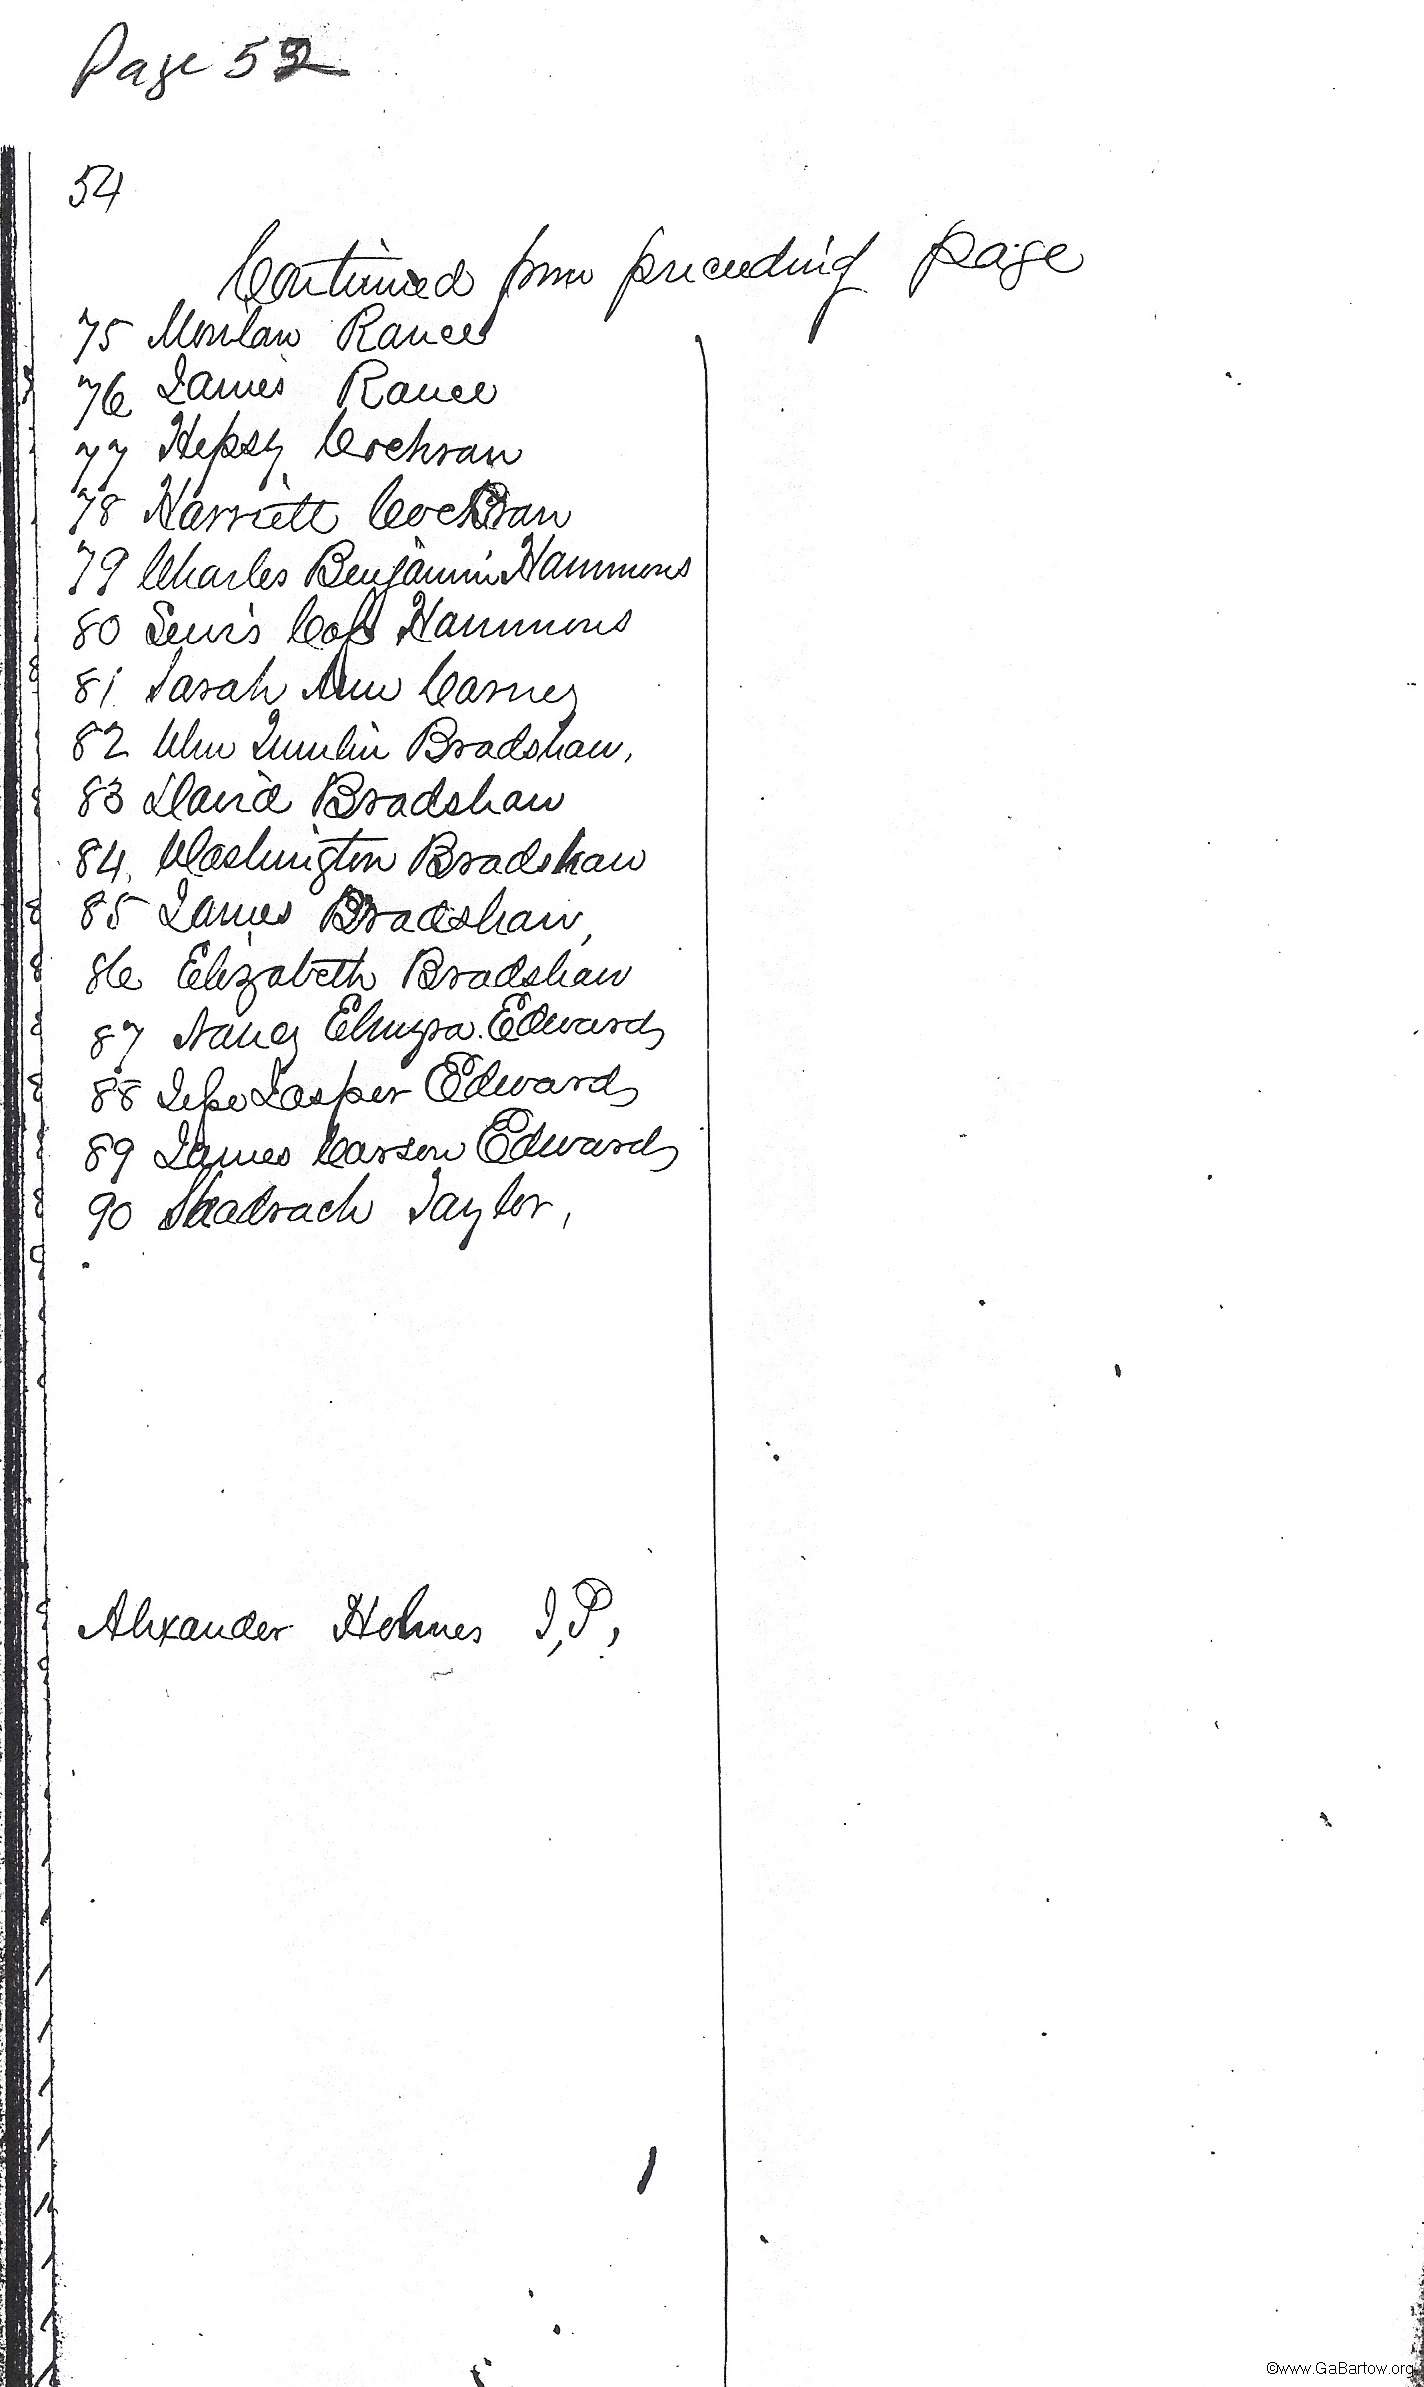 Page 52
54
Continued from preceeding page
75 Rance
76 James Rance
77 Hepsy Cochran
78 Harriett Cochran
79 Charles Benjamin Hammons
80 Lewis Cass Hammons
81. Sarah Ann Carney
82 Wm Tumlin Bradshaw,
83 David Bradshaw
84. Washington Bradshaw
85 James Bradshaw,
86 Elizabeth Bradshaw
87 Nancy Elmyra Edwards
88 Jesse Jasper Edwards
89 James Carson Edwards
90 Shadrach Taylor,
Alexander Holmes J,P,
©www.GaBartow.org